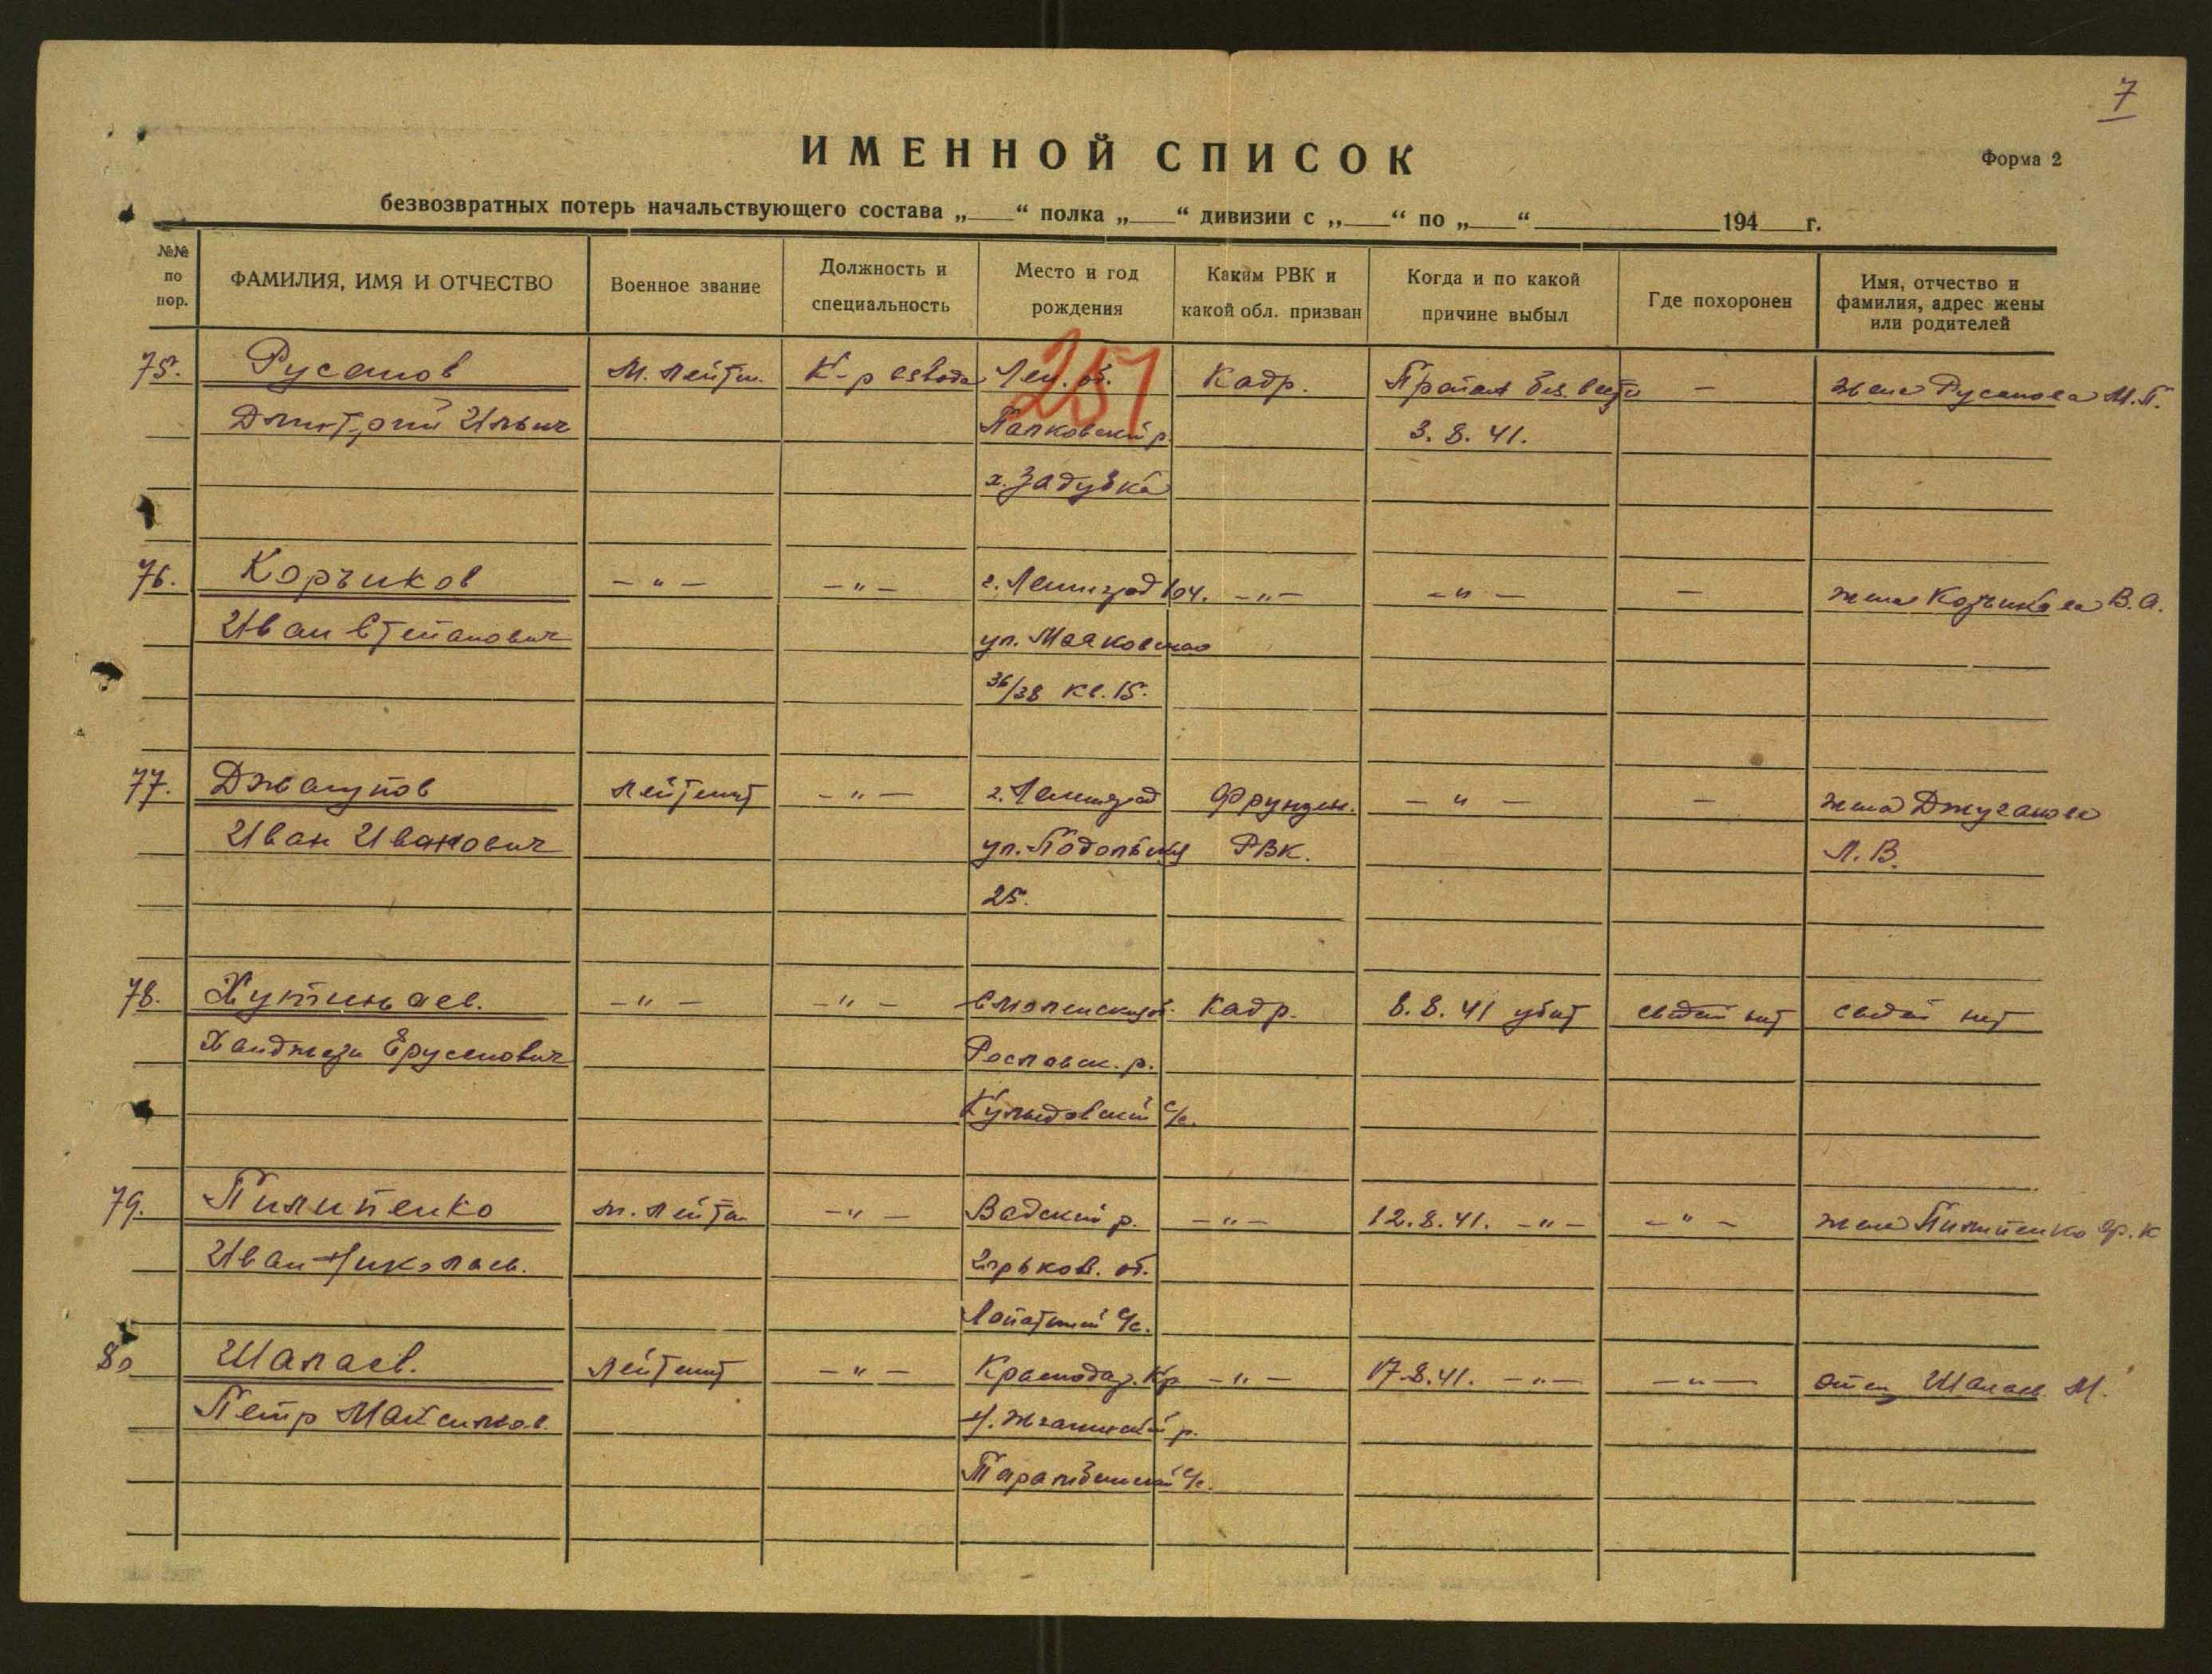 7
ИМЕННОЙ СПИСОК
Форма 2
безвозвратных потерь начальствующего состава „___“ полка „___“ дивизии с „___“ по „___“ ________ 194__ г.
№№ по пор.
ФАМИЛИЯ, ИМЯ И ОТЧЕСТВО
Военное звание
Должность и специальность
Место и год рождения
Каким РВК и какой обл. призван
Когда и по какой причине выбыл
Где похоронен
Имя, отчество и фамилия, адрес жены или родителей
251
75. Русанов М. лейтн. К-р взвода Лен. об. Кадр. Пропал без вести — жена Русанова М.П.
Дмитрий Ильич 3. 8. 41.
х. Задувка
76. Корчиков — " — — " — г. Ленинград — " — — " — — жена Корчикова В.А.
Иван Степанович ул. Маяковского
36/38 кв. 15.
77. лейтенант — " — г. Ленинград Фрунзен. — " — — жена
Иван Иванович ул. Подольская РВК. Л. В.
25.
78. — " — — " — Смоленская об. Кадр. 8. 8. 41 убит сведений нет сведений нет
Рославск. р.
с/с.
79. Пилипенко м. лейтн. — " — Вадский р. — " — 12. 8. 41. — " — — " — жена Пилипенко Ф. К
Иван Николаев. Горьков. об.
с/с.
80 Шалаев. лейтенант — " — Краснодар. Кр — " — 17. 8. 41. — " — — " — отец Шалаев М.
Петр Максимов. р.
с/с.